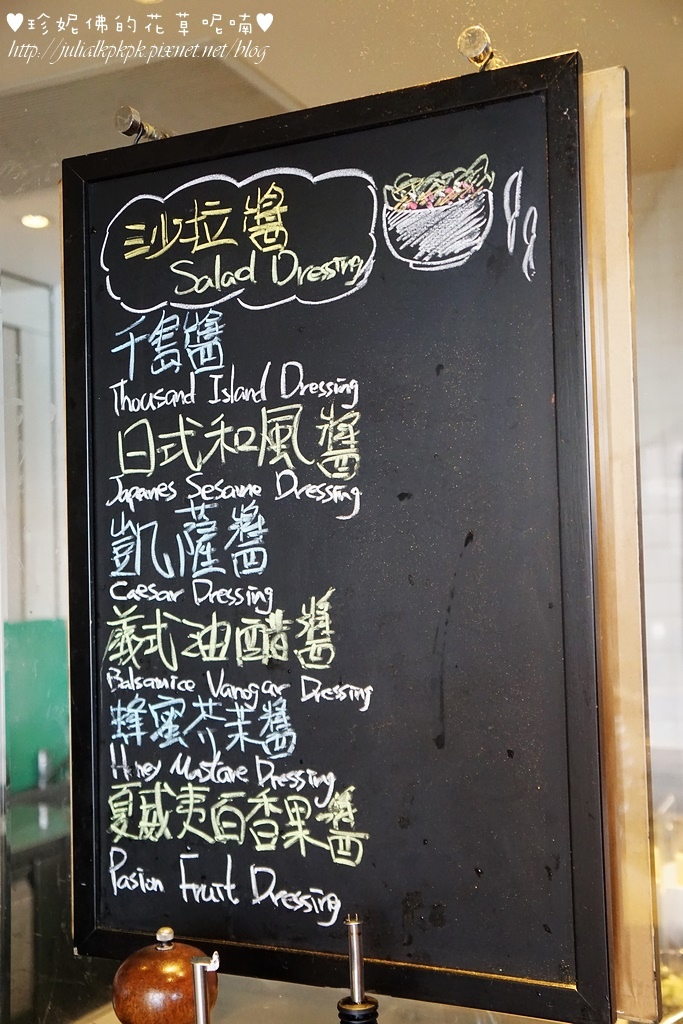 ♥珍妮佛的花草呢喃♥
http://julialkpkpk.pixnet.net/blog
沙拉醬
Salad Dressing
千島醬
Thousand Island Dressing
日式和風醬
Japanes Sesame Dressing
凱薩醬
Caesar Dressing
義式油醋醬
Balsamice Vanogar Dressing
蜂蜜芥茉醬
Hney Mustare Dressing
夏威夷百香果醬
Pasion Fruit Dressing